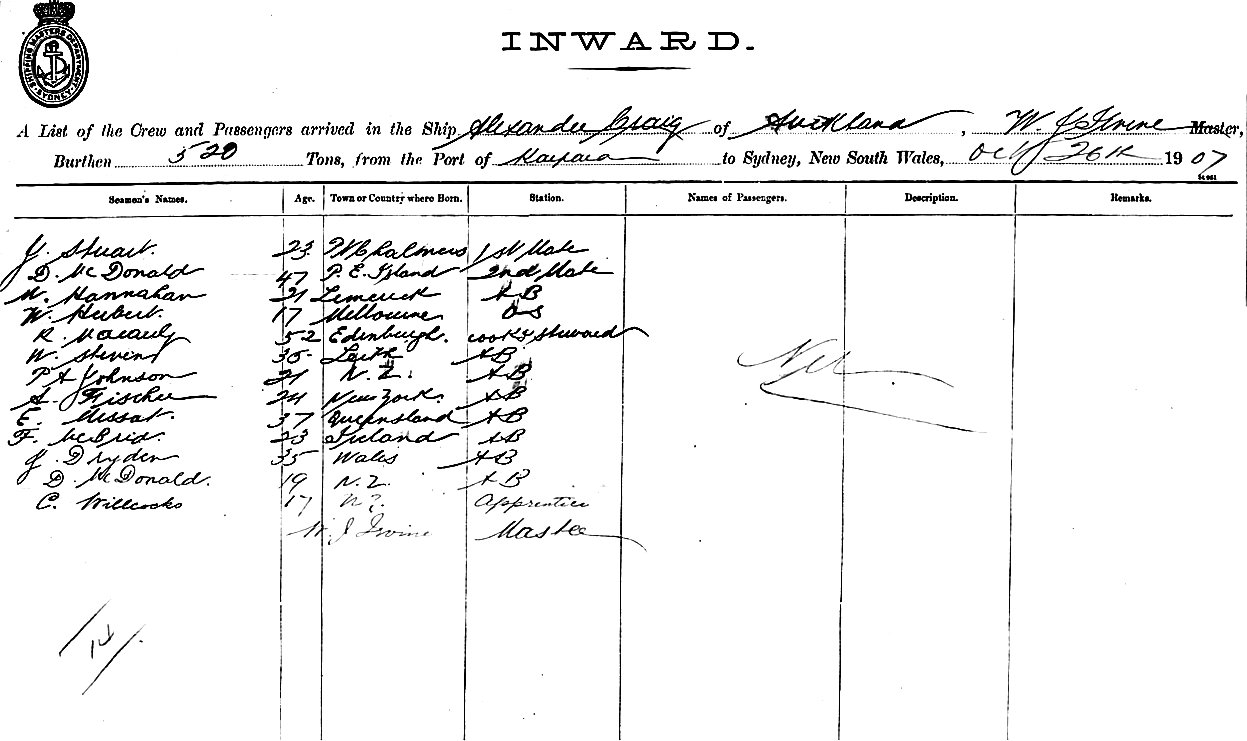 SHIPPING MASTERS DEPARTMENT SYDNEY
INWARD.
A List of the Crew and Passengers arrived in the Ship Alexander Craig of Auckland, W. J. Irvine Master,
Burthen 520 Tons, from the Port of Kaipara to Sydney, New South Wales, Oct 26th 1907
Seamen's Names. Age. Town or Country where Born. Station. Names of Passengers. Description. Remarks.
J. Stuart. 23 Pt Chalmers 1st Mate
D. McDonald 47 P. E. Island 2nd Mate
M. Hannahan 21 Limerick A B
W. Hubert. 17 Melbourne O S
R. Macauly 52 Edinburgh. cook & Steward
W. Stevens 35 Leith A B
P A Johnson 21 N. Z. A B
A. Fischer 24 New York. A B
E. 37 Queensland A B
F. McBrid. 23 Ireland A B
J. Dryden 35 Wales A B
D. McDonald. 19 N. Z. A B
C. Willcocks 17 N Z Apprentice
W. J Irvine Master
Nil
14